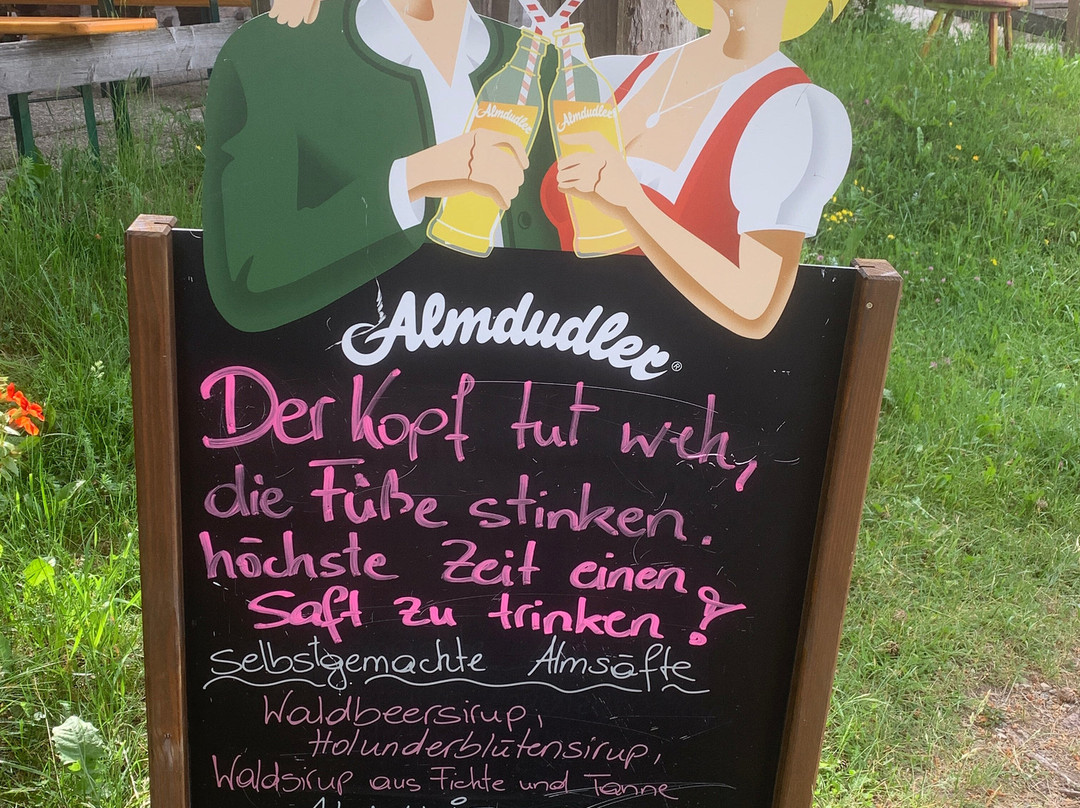 Almdudler
Almdudler
Almdudler®
Der Kopf tut weh,
die Füße stinken.
höchste Zeit einen
Saft zu trinken!
selbstgemachte Almsäfte
Waldbeersirup,
Holunderblütensirup,
Waldsirup aus Fichte und Tanne